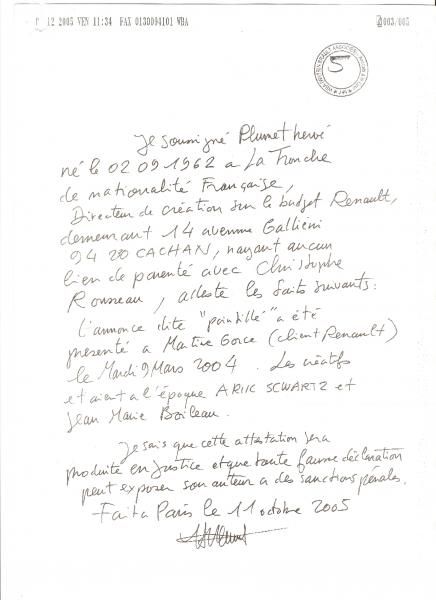 12 2005 VEN 11:34 FAX 0130094101 VBA
003/005
5
Je soussigné Plumet hervé
né le 02 09 1962 a La Tronche
de nationalité Française,
Directeur de création sur le budget Renault,
demeurant 14 avenue Gallieni
94 230 CACHAN, nayant aucun
lien de parenté avec Christophe
Rousseau, atteste les faits suivants:
L'annonce dite "pointillé" a été
présenté a Martine Gorce (client Renault)
le Mardi 9 Mars 2004. Les créatifs
etaient a l'époque ARIK SCWARTZ et
Jean Marie Boileau.
Je sais que cette attestation sera
produite en justice et que toute fausse déclaration
peut exposer son auteur a des sanctions pénales.
Fait a Paris le 11 octobre 2005